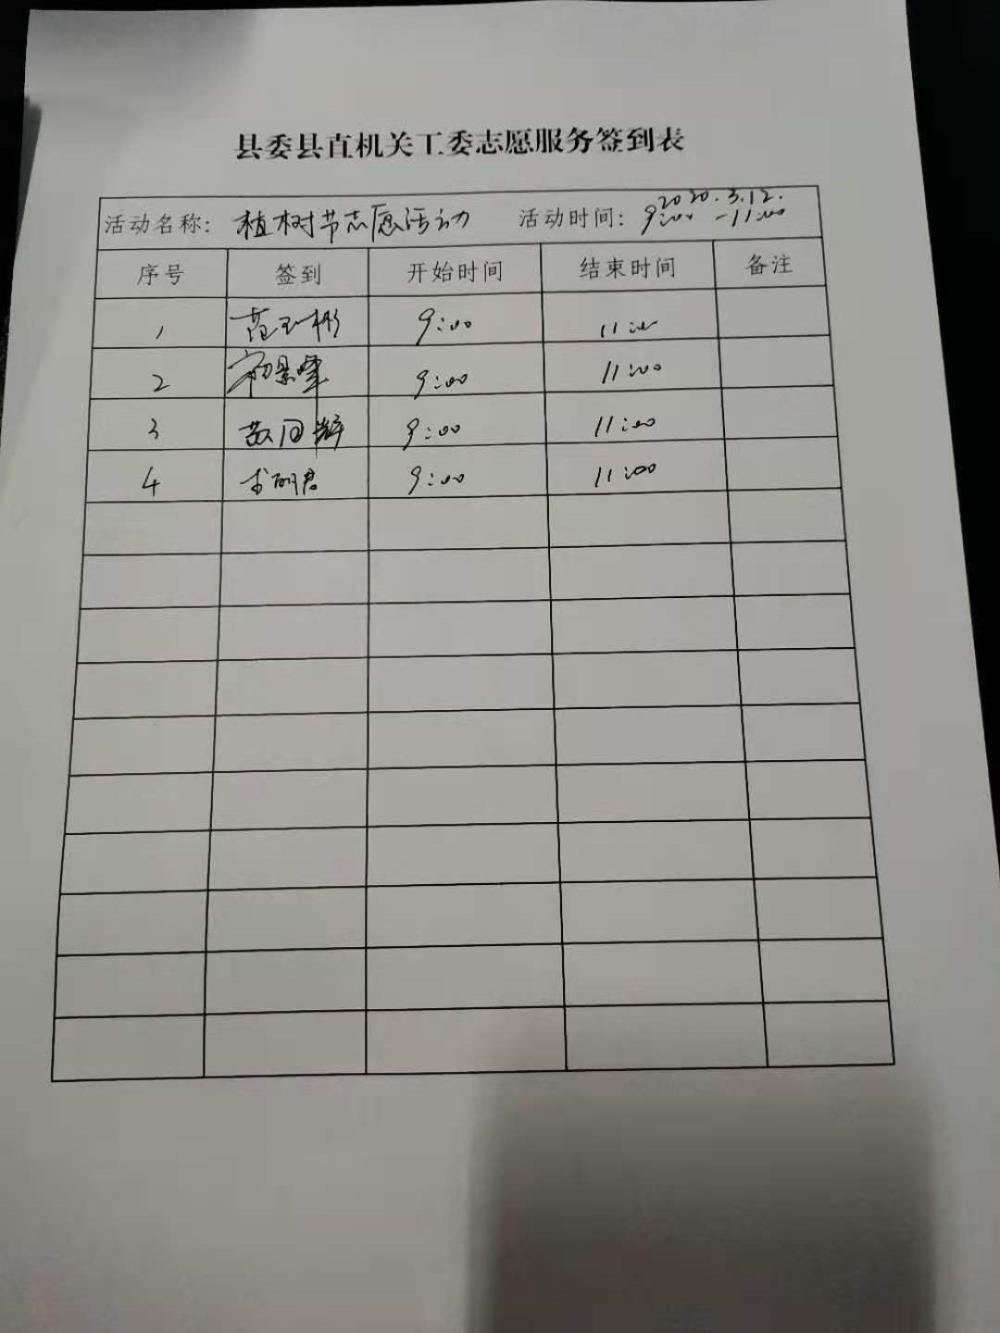 县委县直机关工委志愿服务签到表
活动名称: 植树节志愿活动 活动时间: 2020.3.12. 9:00 - 11:00
序号 签到 开始时间 结束时间 备注
1 范玉彬 9:00 11:00
2 9:00 11:00
3 9:00 11:00
4 9:00 11:00